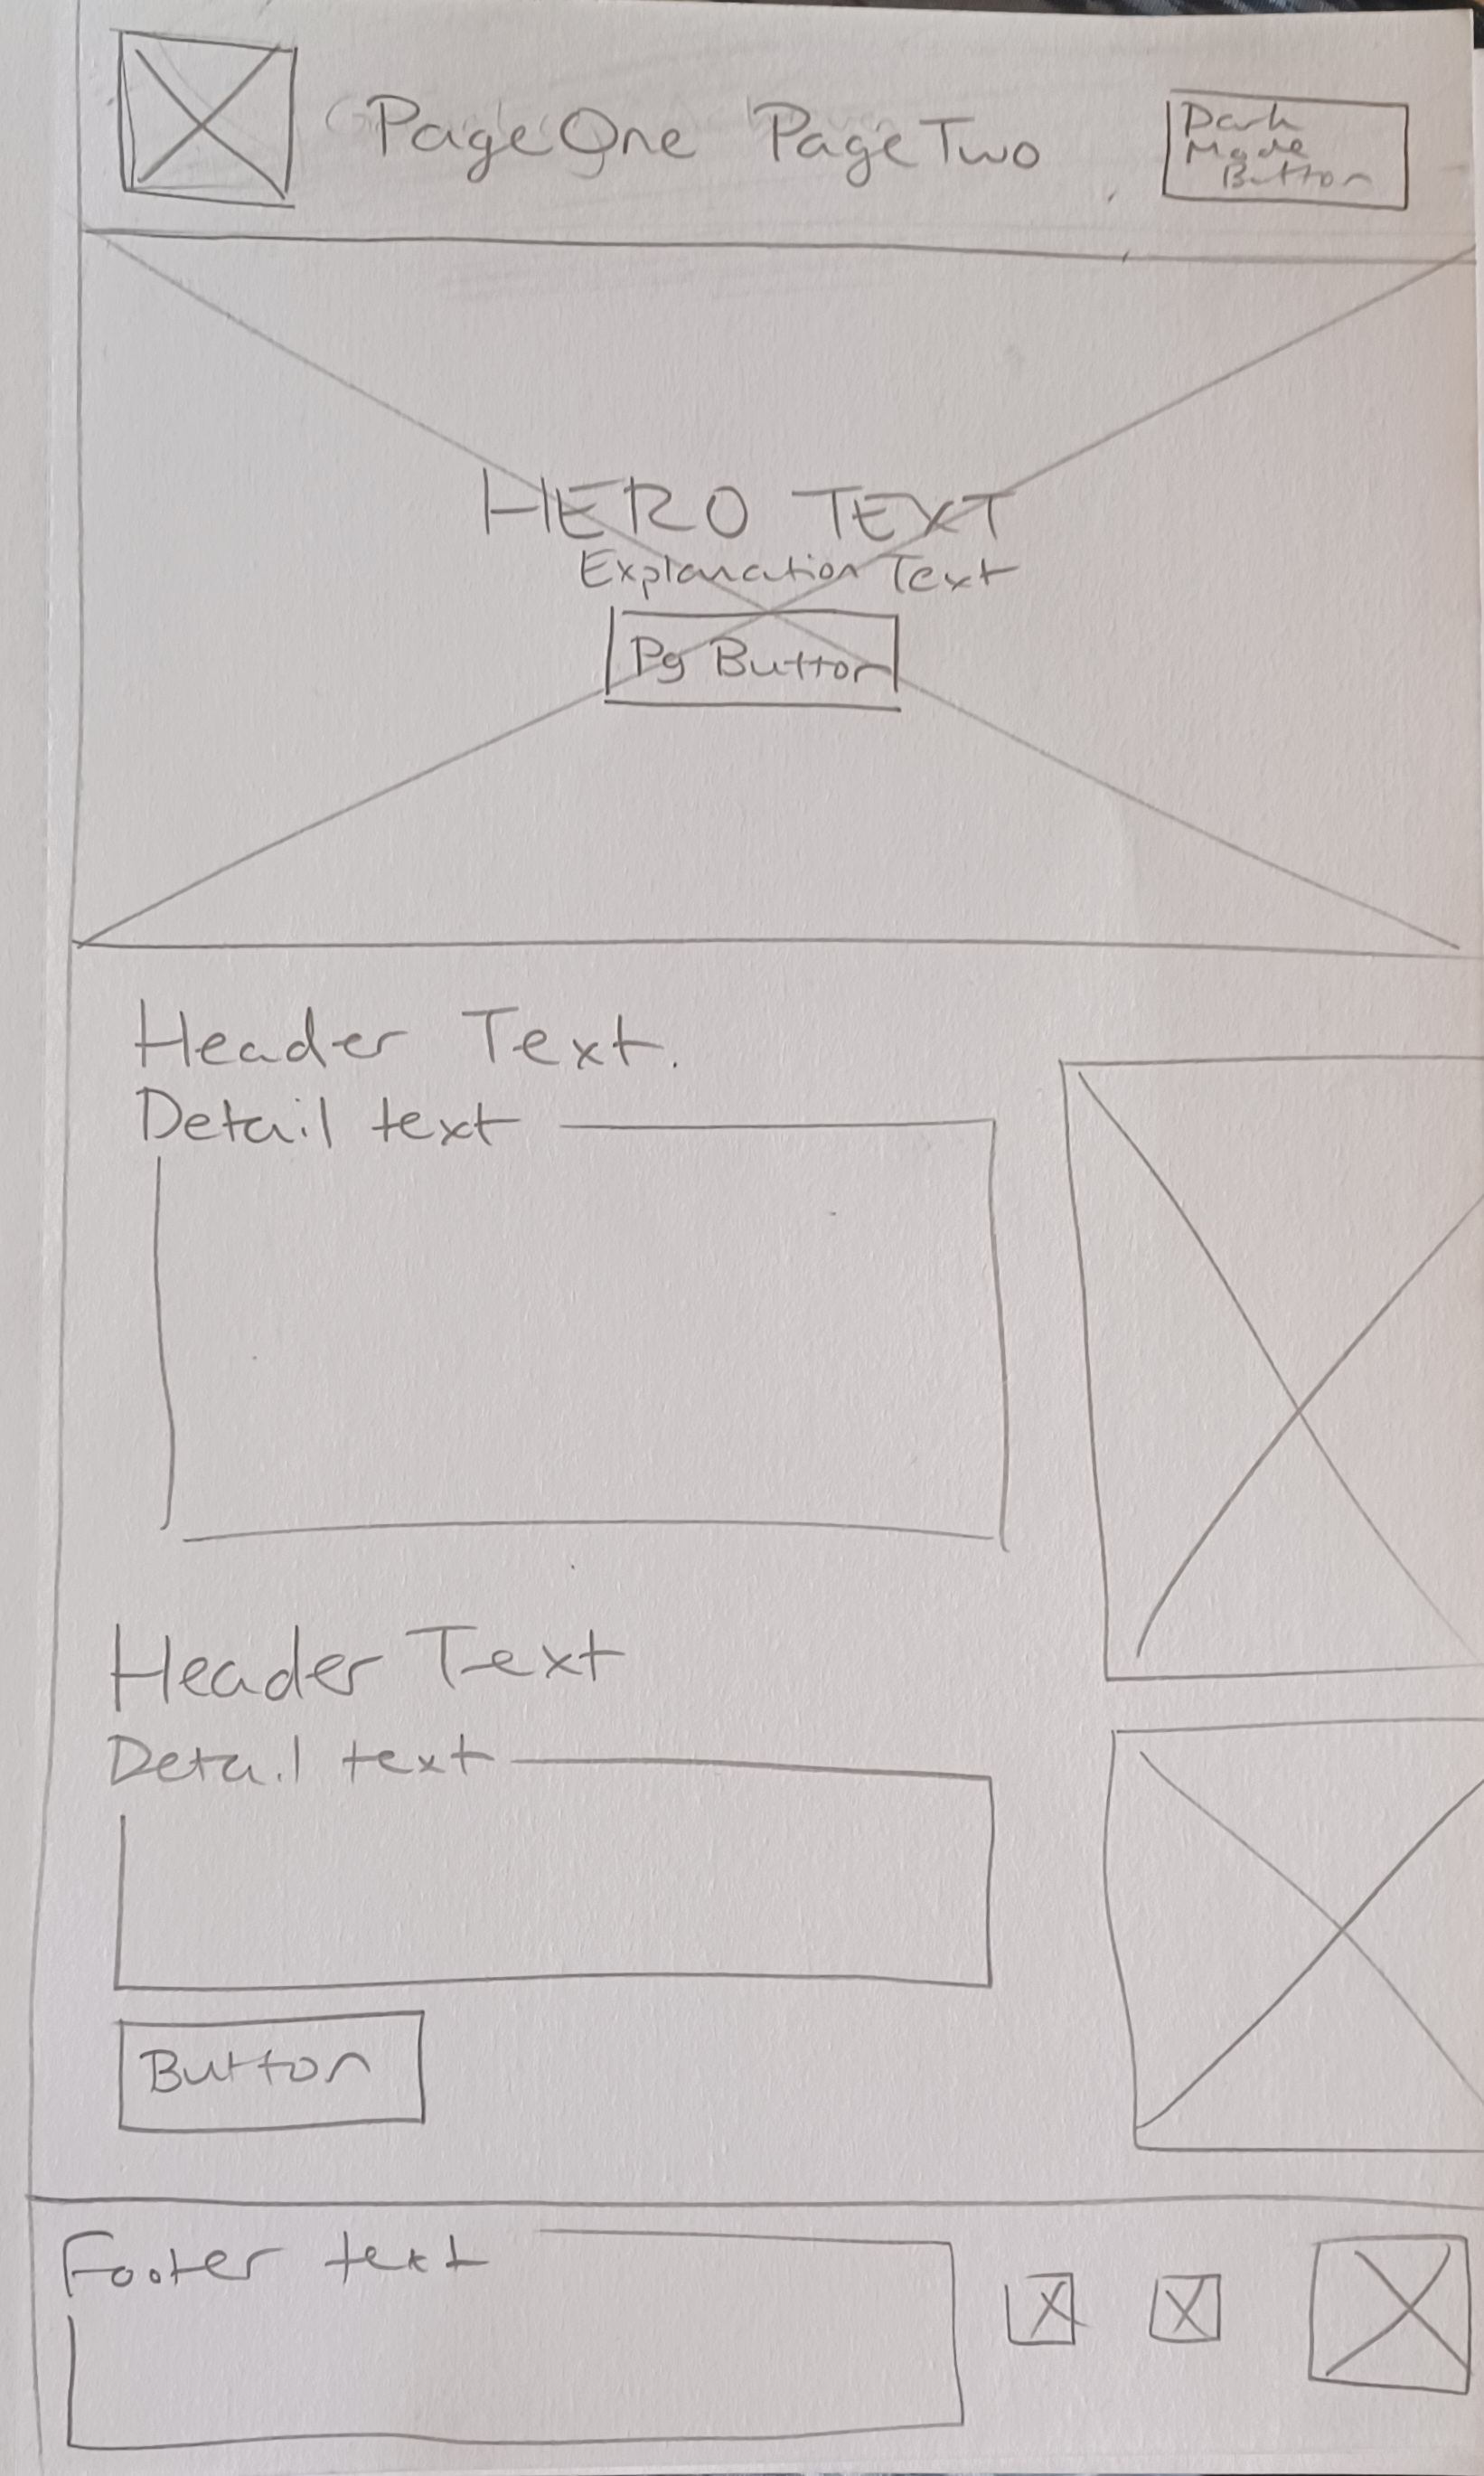 PageOne PageTwo
Dark
Mode
Button
HERO TEXT
Explanation Text
Pg Button
Header Text.
Detail text
Header Text
Detail text
Button
Footer text